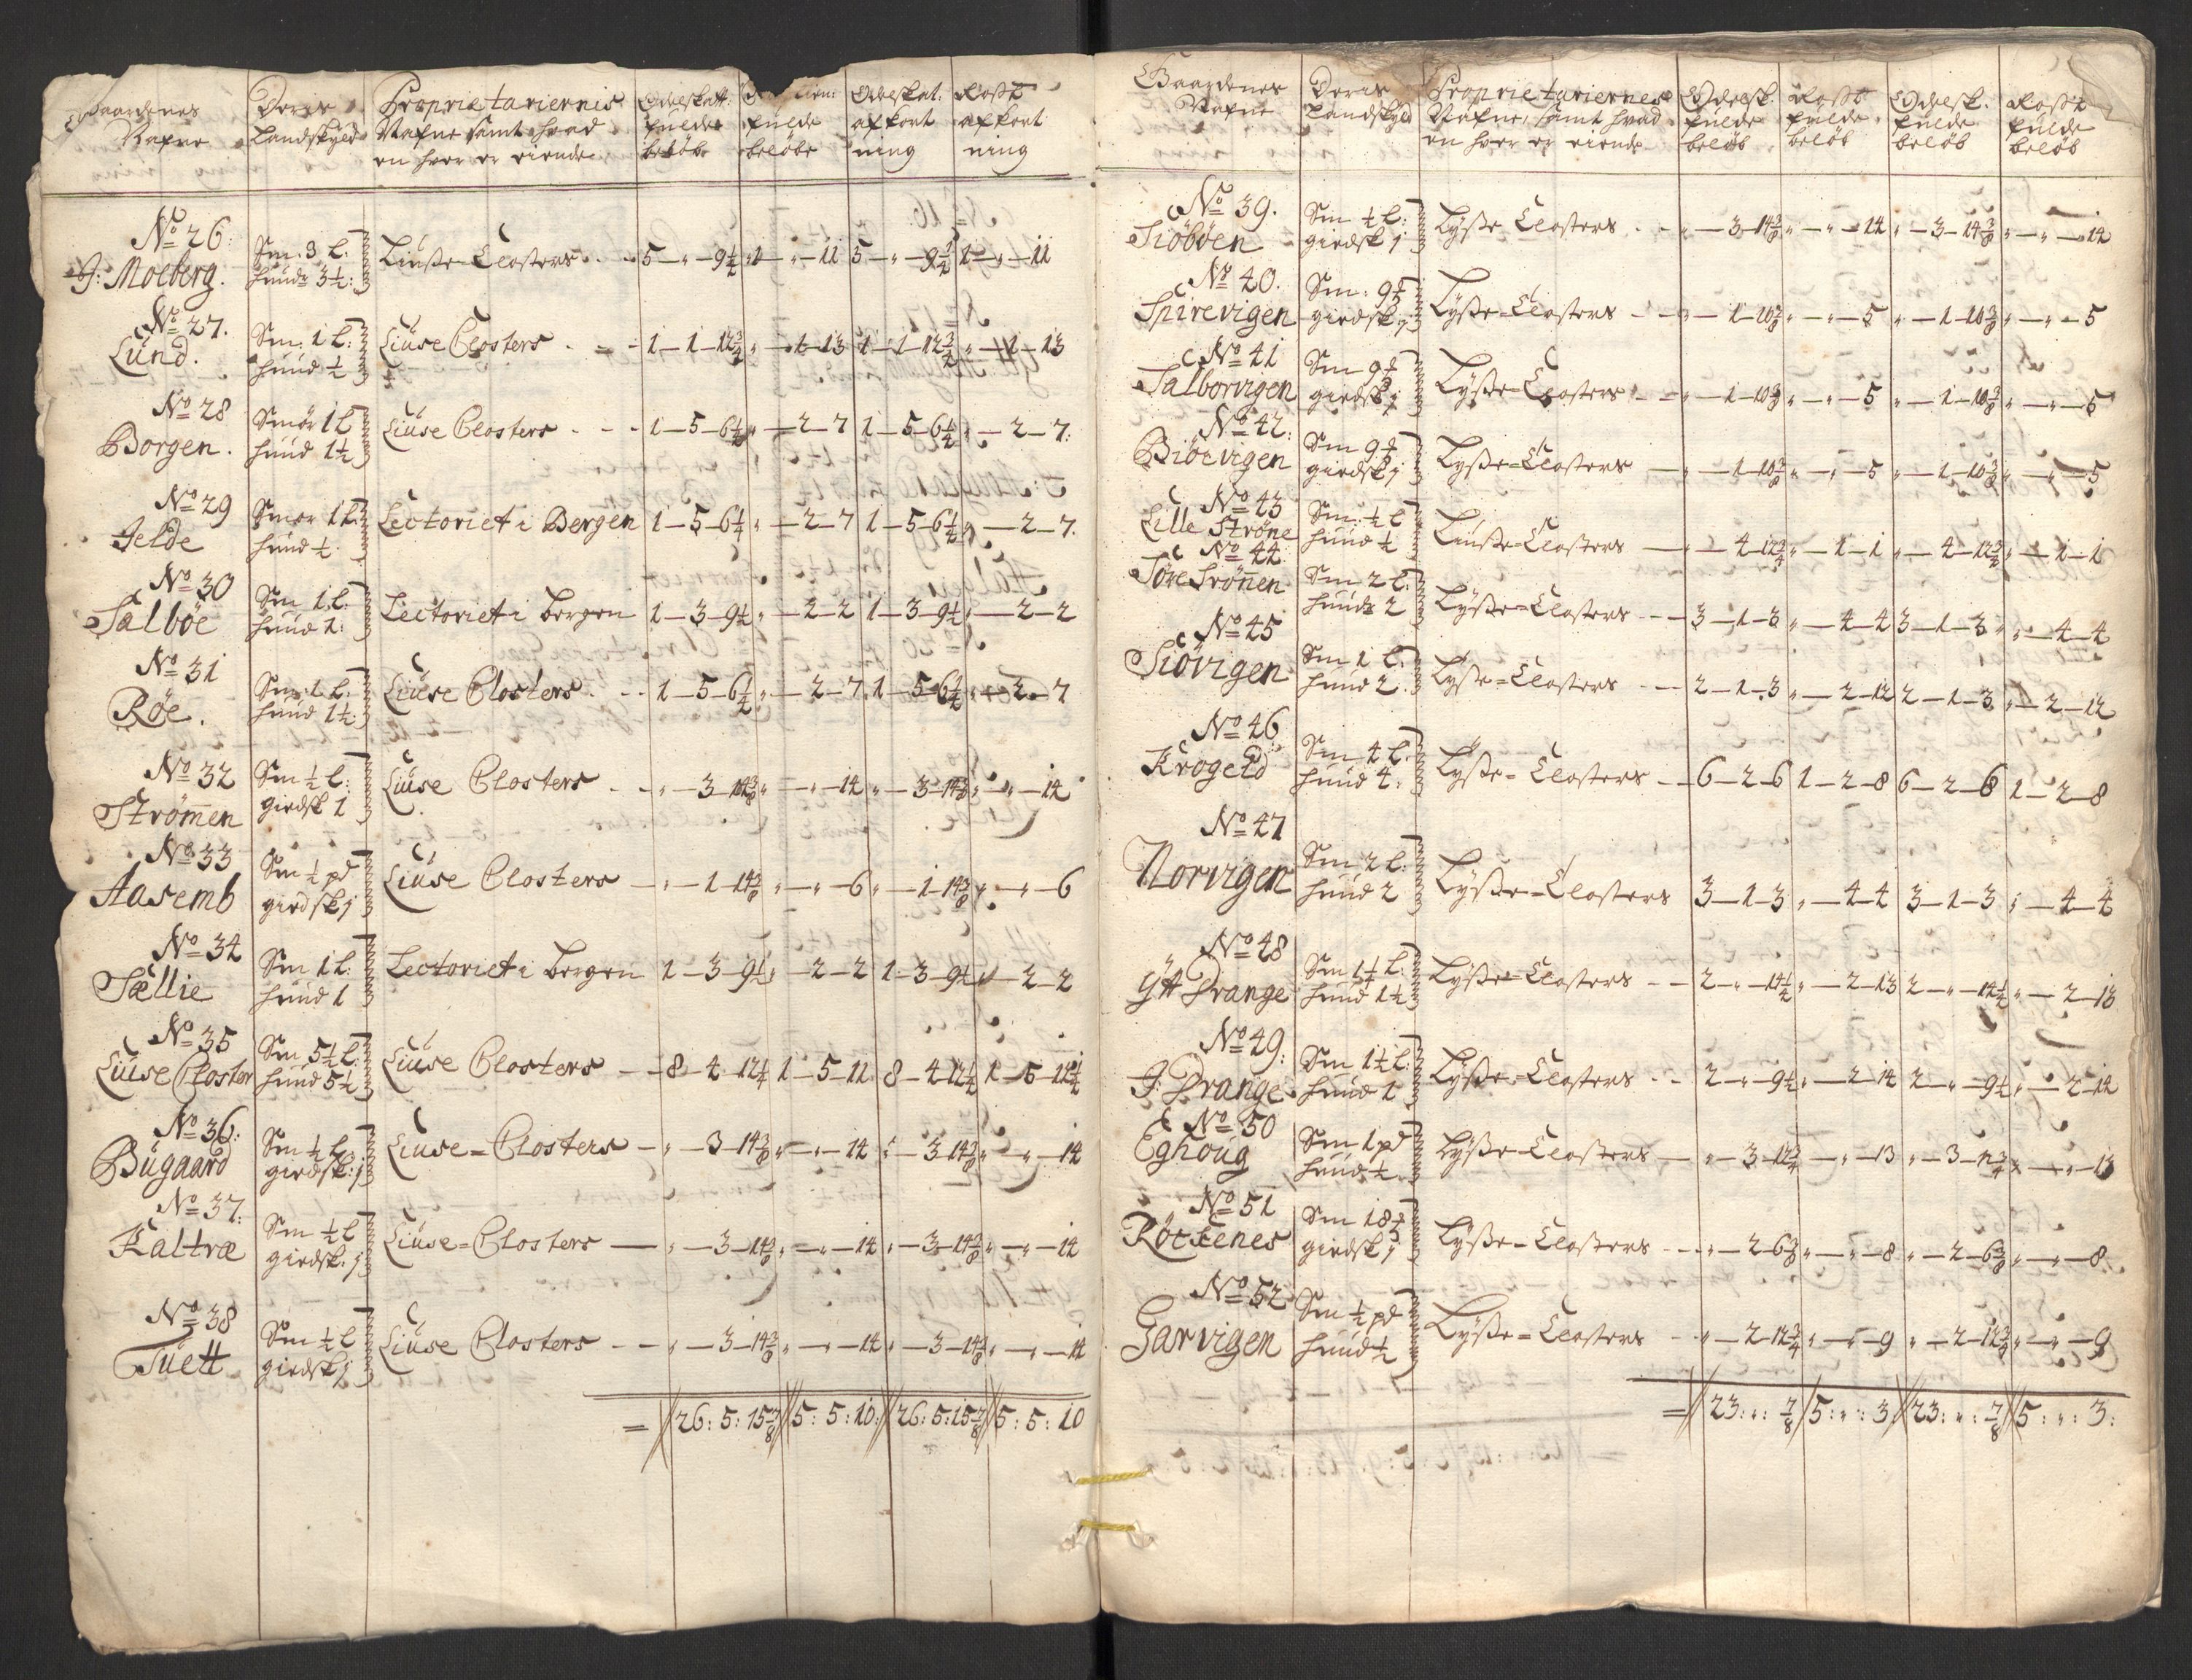 Gaardenes Nafne | Deris Landskyld | Proprietariernis Nafne samt hvad en hver er eiende | Odelskatt: fulde beløb | fulde beløbe | Odelskat: afkort ning | Rostt: afkort ning
No 26: J: Moeberg. | Sm: 3 L: huud 3½: | Liuse Closters | 5 — „ — 9½ | 1 — „ — 11 | 5 — „ — 9½ | 1 — „ — 11
No 27. Lund. | Sm: 1 L: huud ½ | Liuse Closters | 1 — 1 — 12¾ | „ — 1 — 13 | 1 — 1 — 12¾ | „ — 1 — 13
No 28 Borgen. | Smör 1 L huud 1½ | Liuse Closters | 1 — 5 — 6½ | „ — 2 — 7 | 1 — 5 — 6½ | „ — 2 — 7:
No 29 Jelde | Smør 1 L: huud ½ | Lectoriet i Bergen | 1 — 5 — 6½ | „ — 2 — 7 | 1 — 5 — 6½ | „ — 2 — 7.
No 30 Sælböe | Sm 1 L: huud 1: | Lectoriet i bergen | 1 — 3 — 9½ | „ — 2 — 2 | 1 — 3 — 9½ | „ — 2 — 2
No 31 Röe. | Sm: 1 L: huud 1½: | Liuse Closters | 1 — 5 — 6½ | „ — 2 — 7 | 1 — 5 — 6½ | „ — 2 — 7
No 32 Strömen | Sm ½ L: giedsk 1 | Liuse Closters | „ — 3 — 14⅜ | „ — „ — 14 | „ — 3 — 14⅜ | „ — „ — 14
No 33 Aasemb | Sm ½ pd giedsk j | Liuse Closters | „ — 1 — 14⅜ | „ — „ — 6 | „ — 1 — 14⅜ | „ — „ — 6
No 34 Sællie | Sm 1 L: huud 1 | Lectoriet i bergen | 1 — 3 — 9½ | „ — 2 — 2 | 1 — 3 — 9½ | „ — 2 — 2
No 35 Liuse Closter | Sm 5½ L: huud 5½ | Liuse Closters | 8 — 4 — 12½ | 1 — 5 — 11 | 8 — 4 — 12½ | 1 — 5 — 11
No 36: Bugaard | Sm ½ L giedsk: j | Liuse = Closters | „ — 3 — 14⅜ | „ — „ — 14 | „ — 3 — 14⅜ | „ — „ — 14
No 37: Kaltræ | Sm ½ L giedsk: j | Liuse = Closters | „ — 3 — 14⅜ | „ — „ — 14 | „ — 3 — 14⅜ | „ — „ — 14
No 38 Tuett | Sm ½ L giedsk j | Liuse Closters | „ — 3 — 14⅜ | „ — „ — 14 | „ — 3 — 14⅜ | „ — „ — 14
= // 26: 5: 15⅞ // 5: 5: 10: // 26: 5: 15⅞ // 5: 5: 10
Gaardenes Nafne | Deris Landskyld | Proprietariernes Nafne, samt hvad en hver er eiende | Odelsk. fulde beløb | Rostt fulde beløb | Odelsk. fulde beløb | Rostt fulde beløb
No 39. Siöböen | Sm ½ L: giedsk j | Lysse Closters | „ — 3 — 14⅜ | „ — „ — 14 | „ — 3 — 14⅜ | „ — „ — 14
No 40. Spirevigen | Sm: 9 giedsk j | Lysse = Closters | „ — 1 — 10⅜ | „ — „ — 5 | „ — 1 — 10⅜ | „ — „ — 5
No 41 Salborvigen | Sm 9 giedsk j | Lysse = Closters | „ — 1 — 10⅜ | „ — „ — 5 | „ — 1 — 10⅜ | „ — „ — 5
No 42: Biörvigen | Sm 9 giedsk j | Lysse = Closters | „ — 1 — 10⅜ | „ — „ — 5 | „ — 1 — 10⅜ | „ — „ — 5
No 43 Lille Ströne | Sm: ½ L huud ½ | Liusse = Closters | „ — 4 — 12¾ | „ — 1 — 1 | „ — 4 — 12¾ | „ — 1 — 1
No 44: Støre Strönen | Sm 2 L: huude 2 | Lysse = Closters | 3 — 1 — 3 | „ — 4 — 4 | 3 — 1 — 3 | „ — 4 — 4
No 45 Siövigen | Sm 1 L: huud 2 | Lysse = Closters | 2 — 1 — 3 | „ — 2 — 12 | 2 — 1 — 3 | „ — 2 — 12
No 46 Krogeid | Sm 4 L: huud 4: | Lysse = Closters | 6 — 2 — 6 | 1 — 2 — 8 | 6 — 2 — 6 | 1 — 2 — 8
No 47 Norvigen | Sm 2 L: huud 2 | Lysse = Closters | 3 — 1 — 3 | „ — 4 — 4 | 3 — 1 — 3 | „ — 4 — 4
No 48 Ytt Drange | Sm 1½ L: huud 1½ | Lysse = Closters | 2 — „ — 14½ | „ — 2 — 13 | 2 — „ — 14½ | „ — 2 — 13
No 49: J: Drange | Sm 1½ L: huud 1 | Lysse = Closters | 2 — „ — 9½ | „ — 2 — 14 | 2 — „ — 9½ | „ — 2 — 14
No 50 Eghoug | Sm 1 pd huud ½ | Lysse = Closters | „ — 3 — 12¾ | „ — „ — 13 | „ — 3 — 12¾ | „ — „ — 13
No 51 Röttenes | Sm 18 giedsk j | Lysse = Closters | „ — 2 — 6⅜ | „ — „ — 8 | „ — 2 — 6⅜ | „ — „ — 8
No 52 Garvigen | Sm ½ pd huud ½ | Lysse = Closters | „ — 2 — 12¾ | „ — „ — 9 | „ — 2 — 12¾ | „ — „ — 9
= // 23: „: ⅞ // 5: „: 3 // 23: „: ⅞ // 5: „: 3: